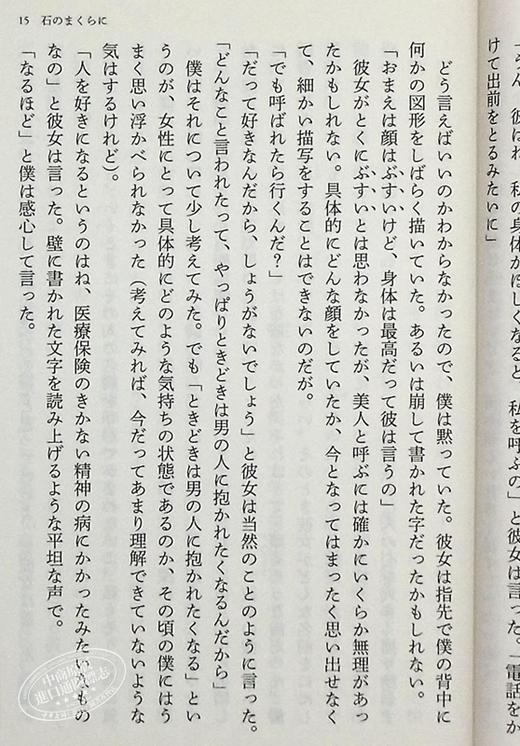 15　石のまくらに
うん、彼はね、私の身体がほしくなると、私を呼ぶの」と彼女は言った。「電話をか
けて出前をとるみたいに」
どう言えばいいのかわからなかったので、僕は黙っていた。彼女は指先で僕の背中に
何かの図形をしばらく描いていた。あるいは崩して書かれた字だったかもしれない。
「おまえは顔はぶすいけど、身体は最高だって彼は言うの」
彼女がとくにぶすいとは思わなかったが、美人と呼ぶには確かにいくらか無理があっ
たかもしれない。具体的にどんな顔をしていたか、今となってはまったく思い出せなく
て、細かい描写をすることはできないのだが。
「でも呼ばれたら行くんだ？」
「だって好きなんだから、しょうがないでしょう」と彼女は当然のことのように言った。
「どんなこと言われたって、やっぱりときどきは男の人に抱かれたくなるんだから」
僕はそれについて少し考えてみた。でも「ときどきは男の人に抱かれたくなる」とい
うのが、女性にとって具体的にどのような気持ちの状態であるのか、その頃の僕にはう
まく思い浮かべられなかった（考えてみれば、今だってあまり理解できていないような
気はするけれど）。
「人を好きになるというのはね、医療保険のきかない精神の病にかかったみたいなもの
なの」と彼女は言った。壁に書かれた文字を読み上げるような平坦な声で。
「なるほど」と僕は感心して言った。
中商
進口通商標誌